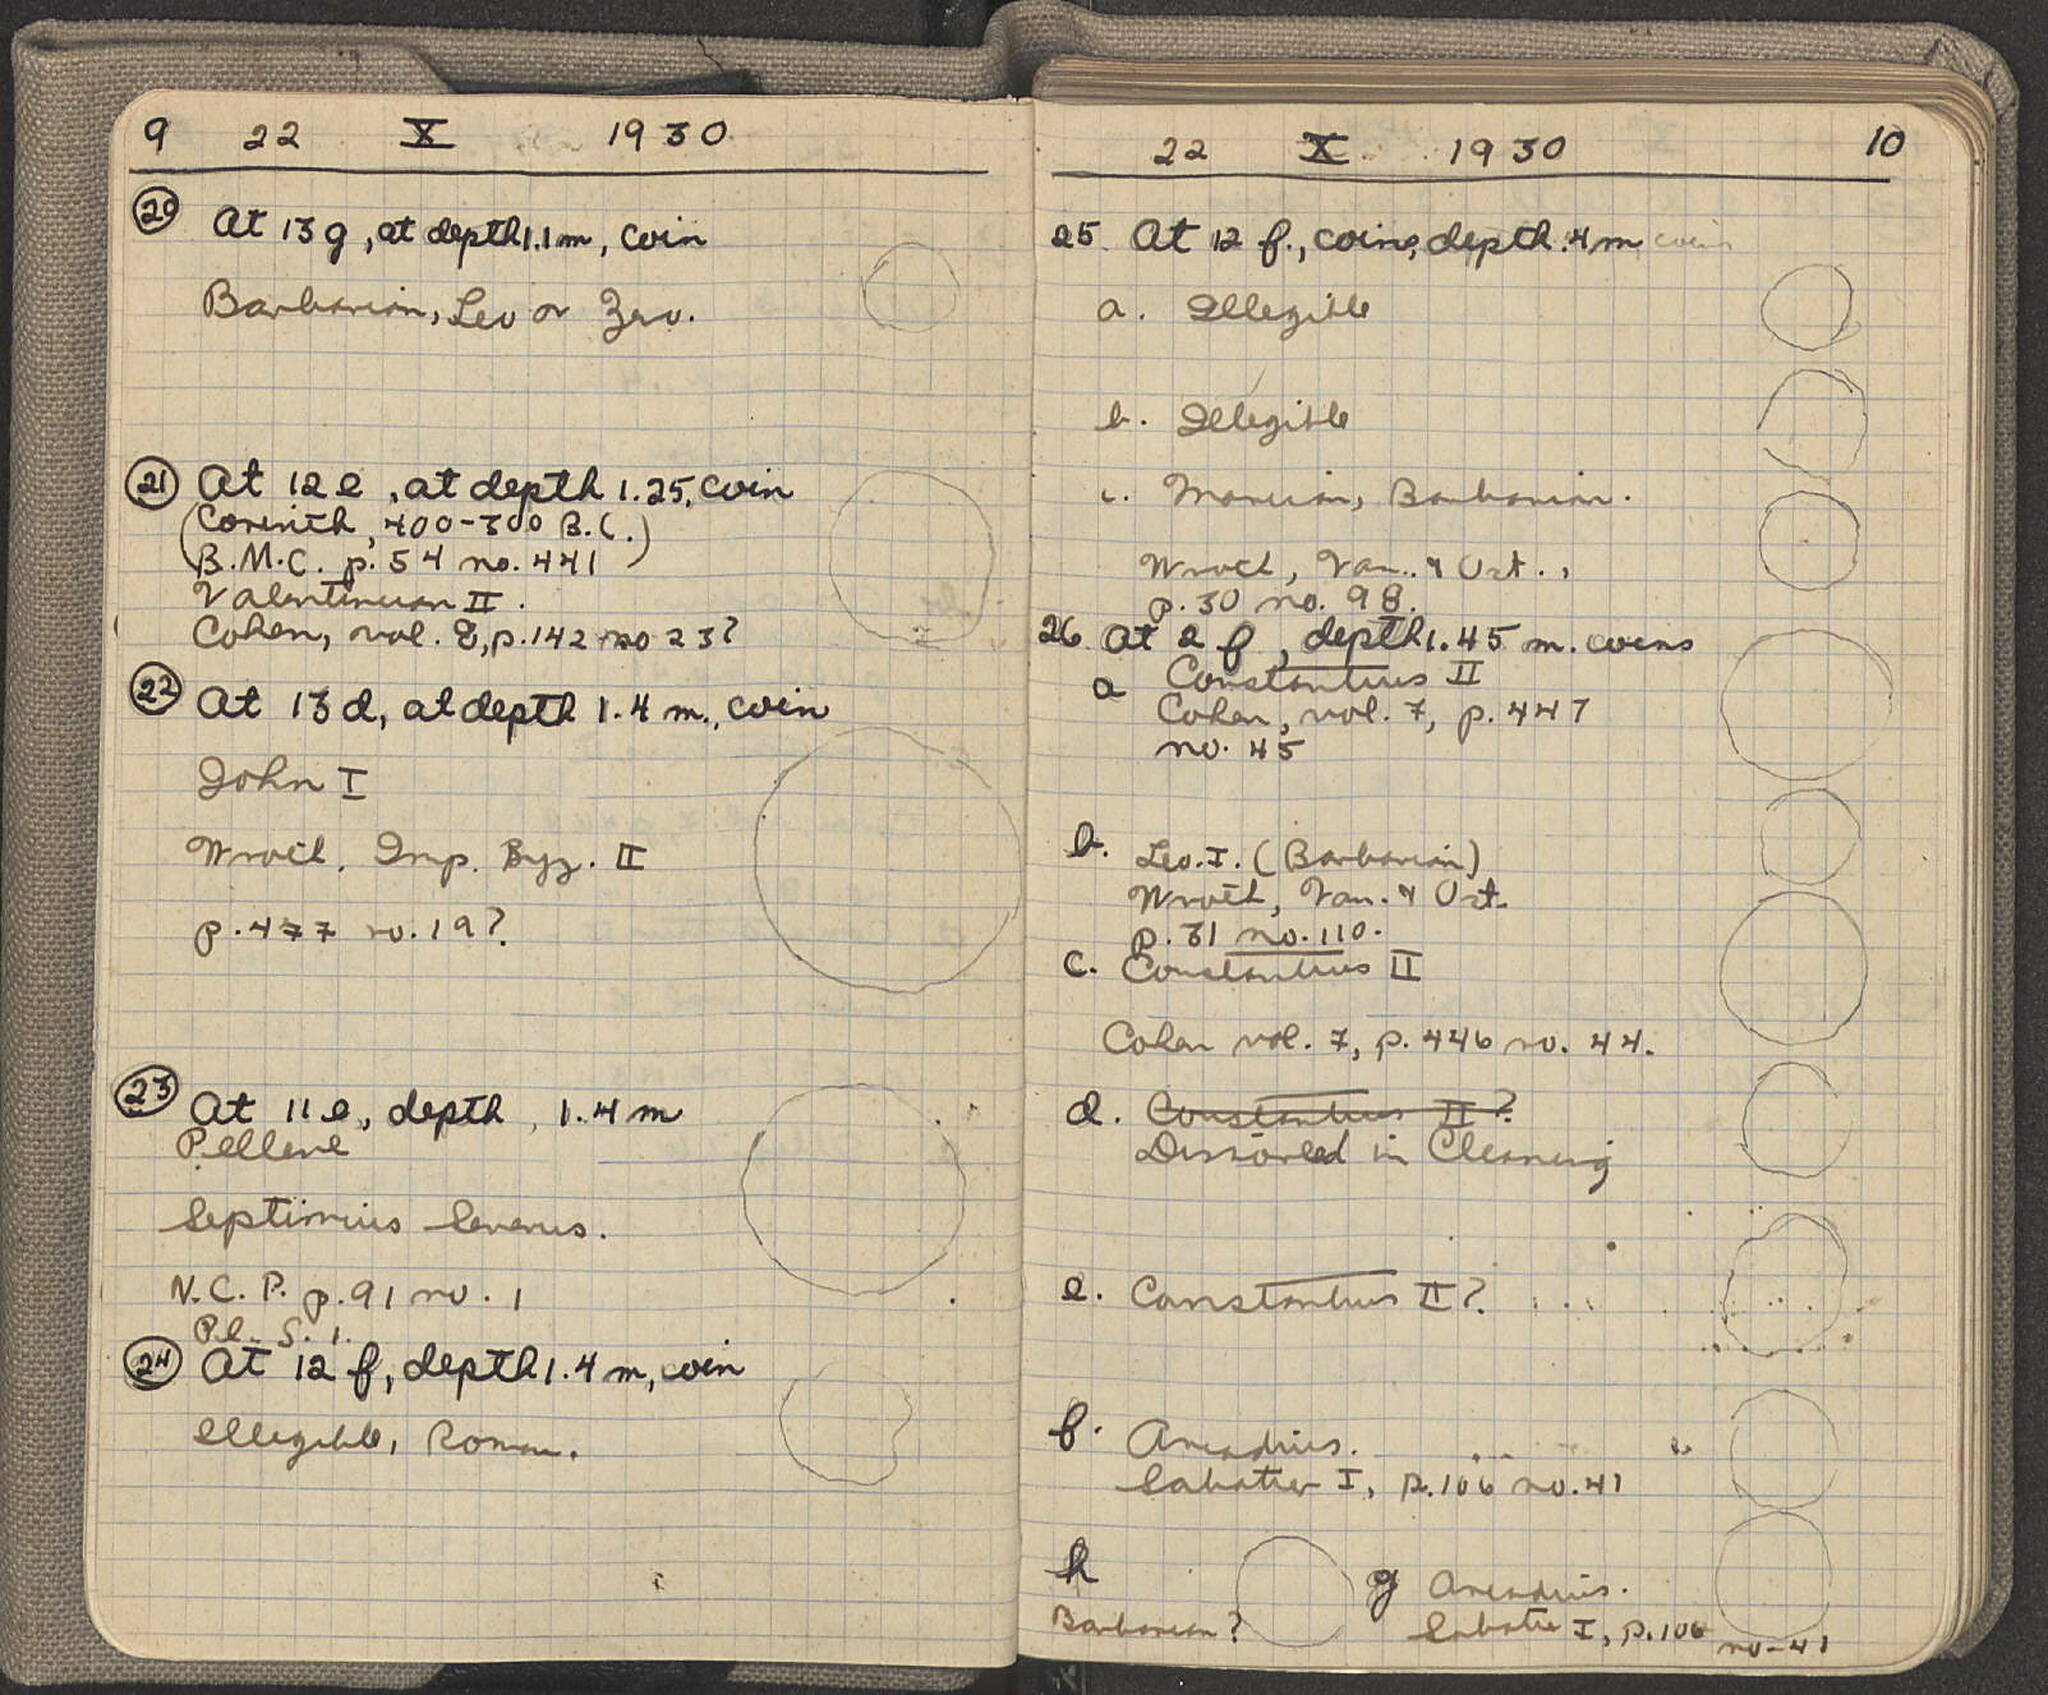 9 22 X 1930
20 At 13 g, at depth 1.1 m, coin
Barbarian, Leo or Zeno.
21 At 12 e, at depth 1.25, coin
(Corinth, 400-300 B.C.
B.M.C. p. 54 no. 441)
Valentinian II.
Cohen, vol. 8, p. 142 no 23?
22 At 13 d, at depth 1.4 m., coin
John I
Wroth. Imp. Byz. II
p. 477 no. 19?
23 At 11 e, depth, 1.4 m
Pellene
Septimius Severus.
N.C.P. p. 91 no. 1
Pl. S. 1.
24 At 12 f, depth 1.4 m, coin
Illegible, Roman.
22 X 1930 10
25. At 12 f., coins, depth .4 m coins
a. Illegible
b. Illegible
c. Marcian, Barbarian.
Wroth, Van. & Ost.,
p. 30 no. 98.
26. At 2 f, depth 1.45 m. coins
a Constantius II
Cohen, vol. 7, p. 447
no. 45
b. Leo. I. (Barbarian)
Wroth, Van. & Ost.
p. 31 no. 110.
c. Constantius II
Cohen vol. 7, p. 446 no. 44.
d. Constantius II?
Dissolved in Cleaning
e. Constantius II?
f. Arcadius.
Sabatier I, p. 106 no. 41
h g Arcadius.
Barbarian? Sabatier I, p. 106 no-41